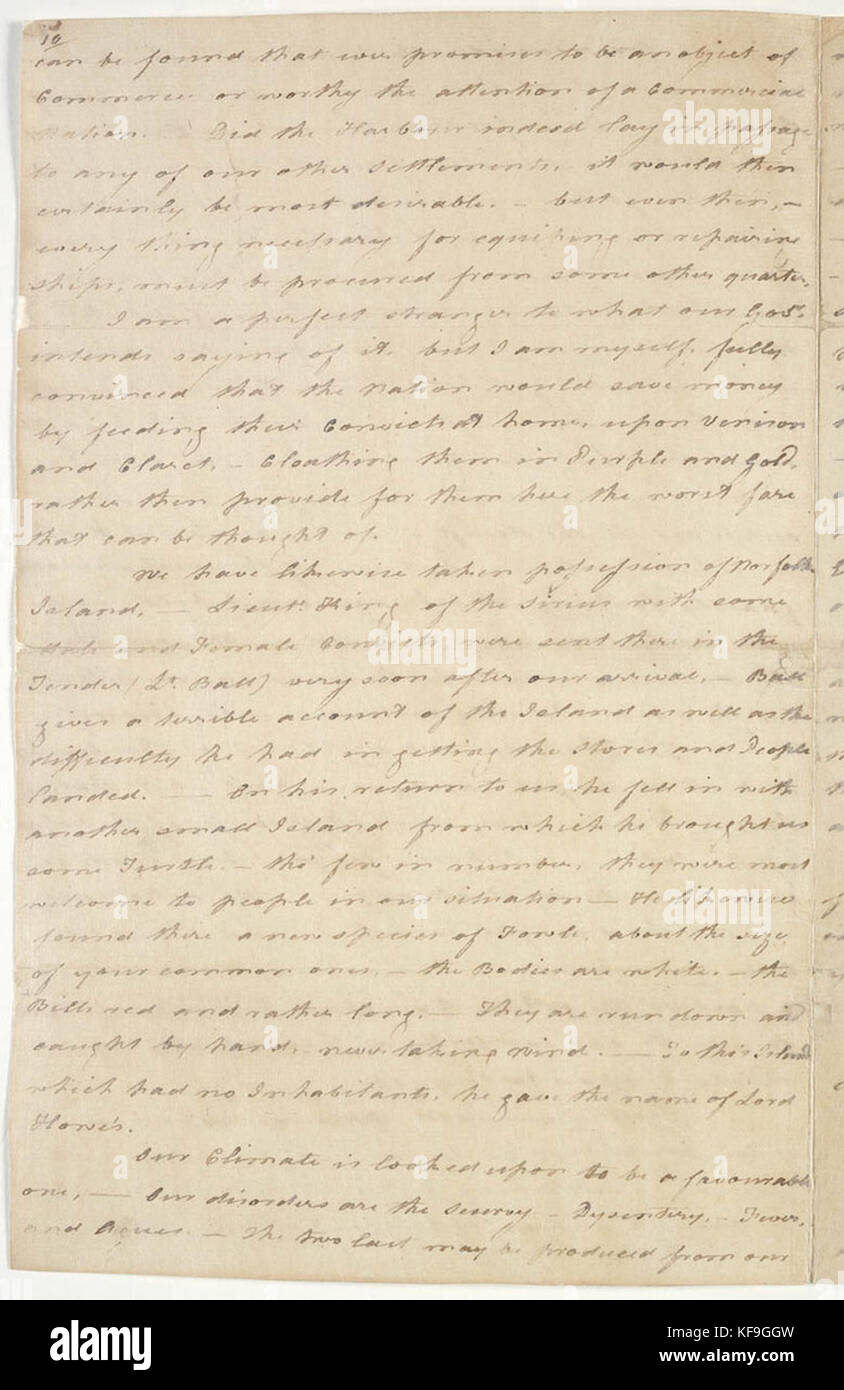 10
can be found that ever promises to be an object of
Commerce or worthy the attention of a Commercial
Nation. Did the Harbour indeed lay in passage
to any of our other Settlements, it would then
certainly be most desirable. – but even then, –
every thing necessary for equiping or repairing
ships, must be procured from some other quarter.
I am a perfect stranger to what our Govr.
intends saying of it, but I am myself, fully
convinced that the Nation would save money
by feeding their Convicts at home, upon Venison
and Claret, – Cloathing them in Purple and Gold,
rather then provide for them here the worst fare
that can be thought of.
We have likewise taken possession of Norfolk
Island, – Lieut. King of the Sirius with some
Male and Female Convicts were sent there in the
Tender (Lt. Ball) very soon after our arrival, – Ball
gives a terrible account of the Island as well as the
difficulty he had in getting the Stores and People
landed. – On his return to us he fell in with
another small Island from which he brought us
some Turtle. – tho' few in number, they were most
welcome to people in our situation – He likewise
found there a new species of Fowle, about the size
of your common ones, – the Bodies are white, – the
Bills red and rather long. – They are run down and
caught by hand, – never taking wind. – To this Island
which had no Inhabitants, he gave the name of Lord
Howe's.
Our Climate is looked upon to be a favourable
one, – Our disorders are the Scurvy – Dysentery, – Fever,
and Agues. – The two last may be produced from our
alamy
alamy
alamy
alamy
alamy
alamy
alamy
Image ID: KF9GGW
www.alamy.com